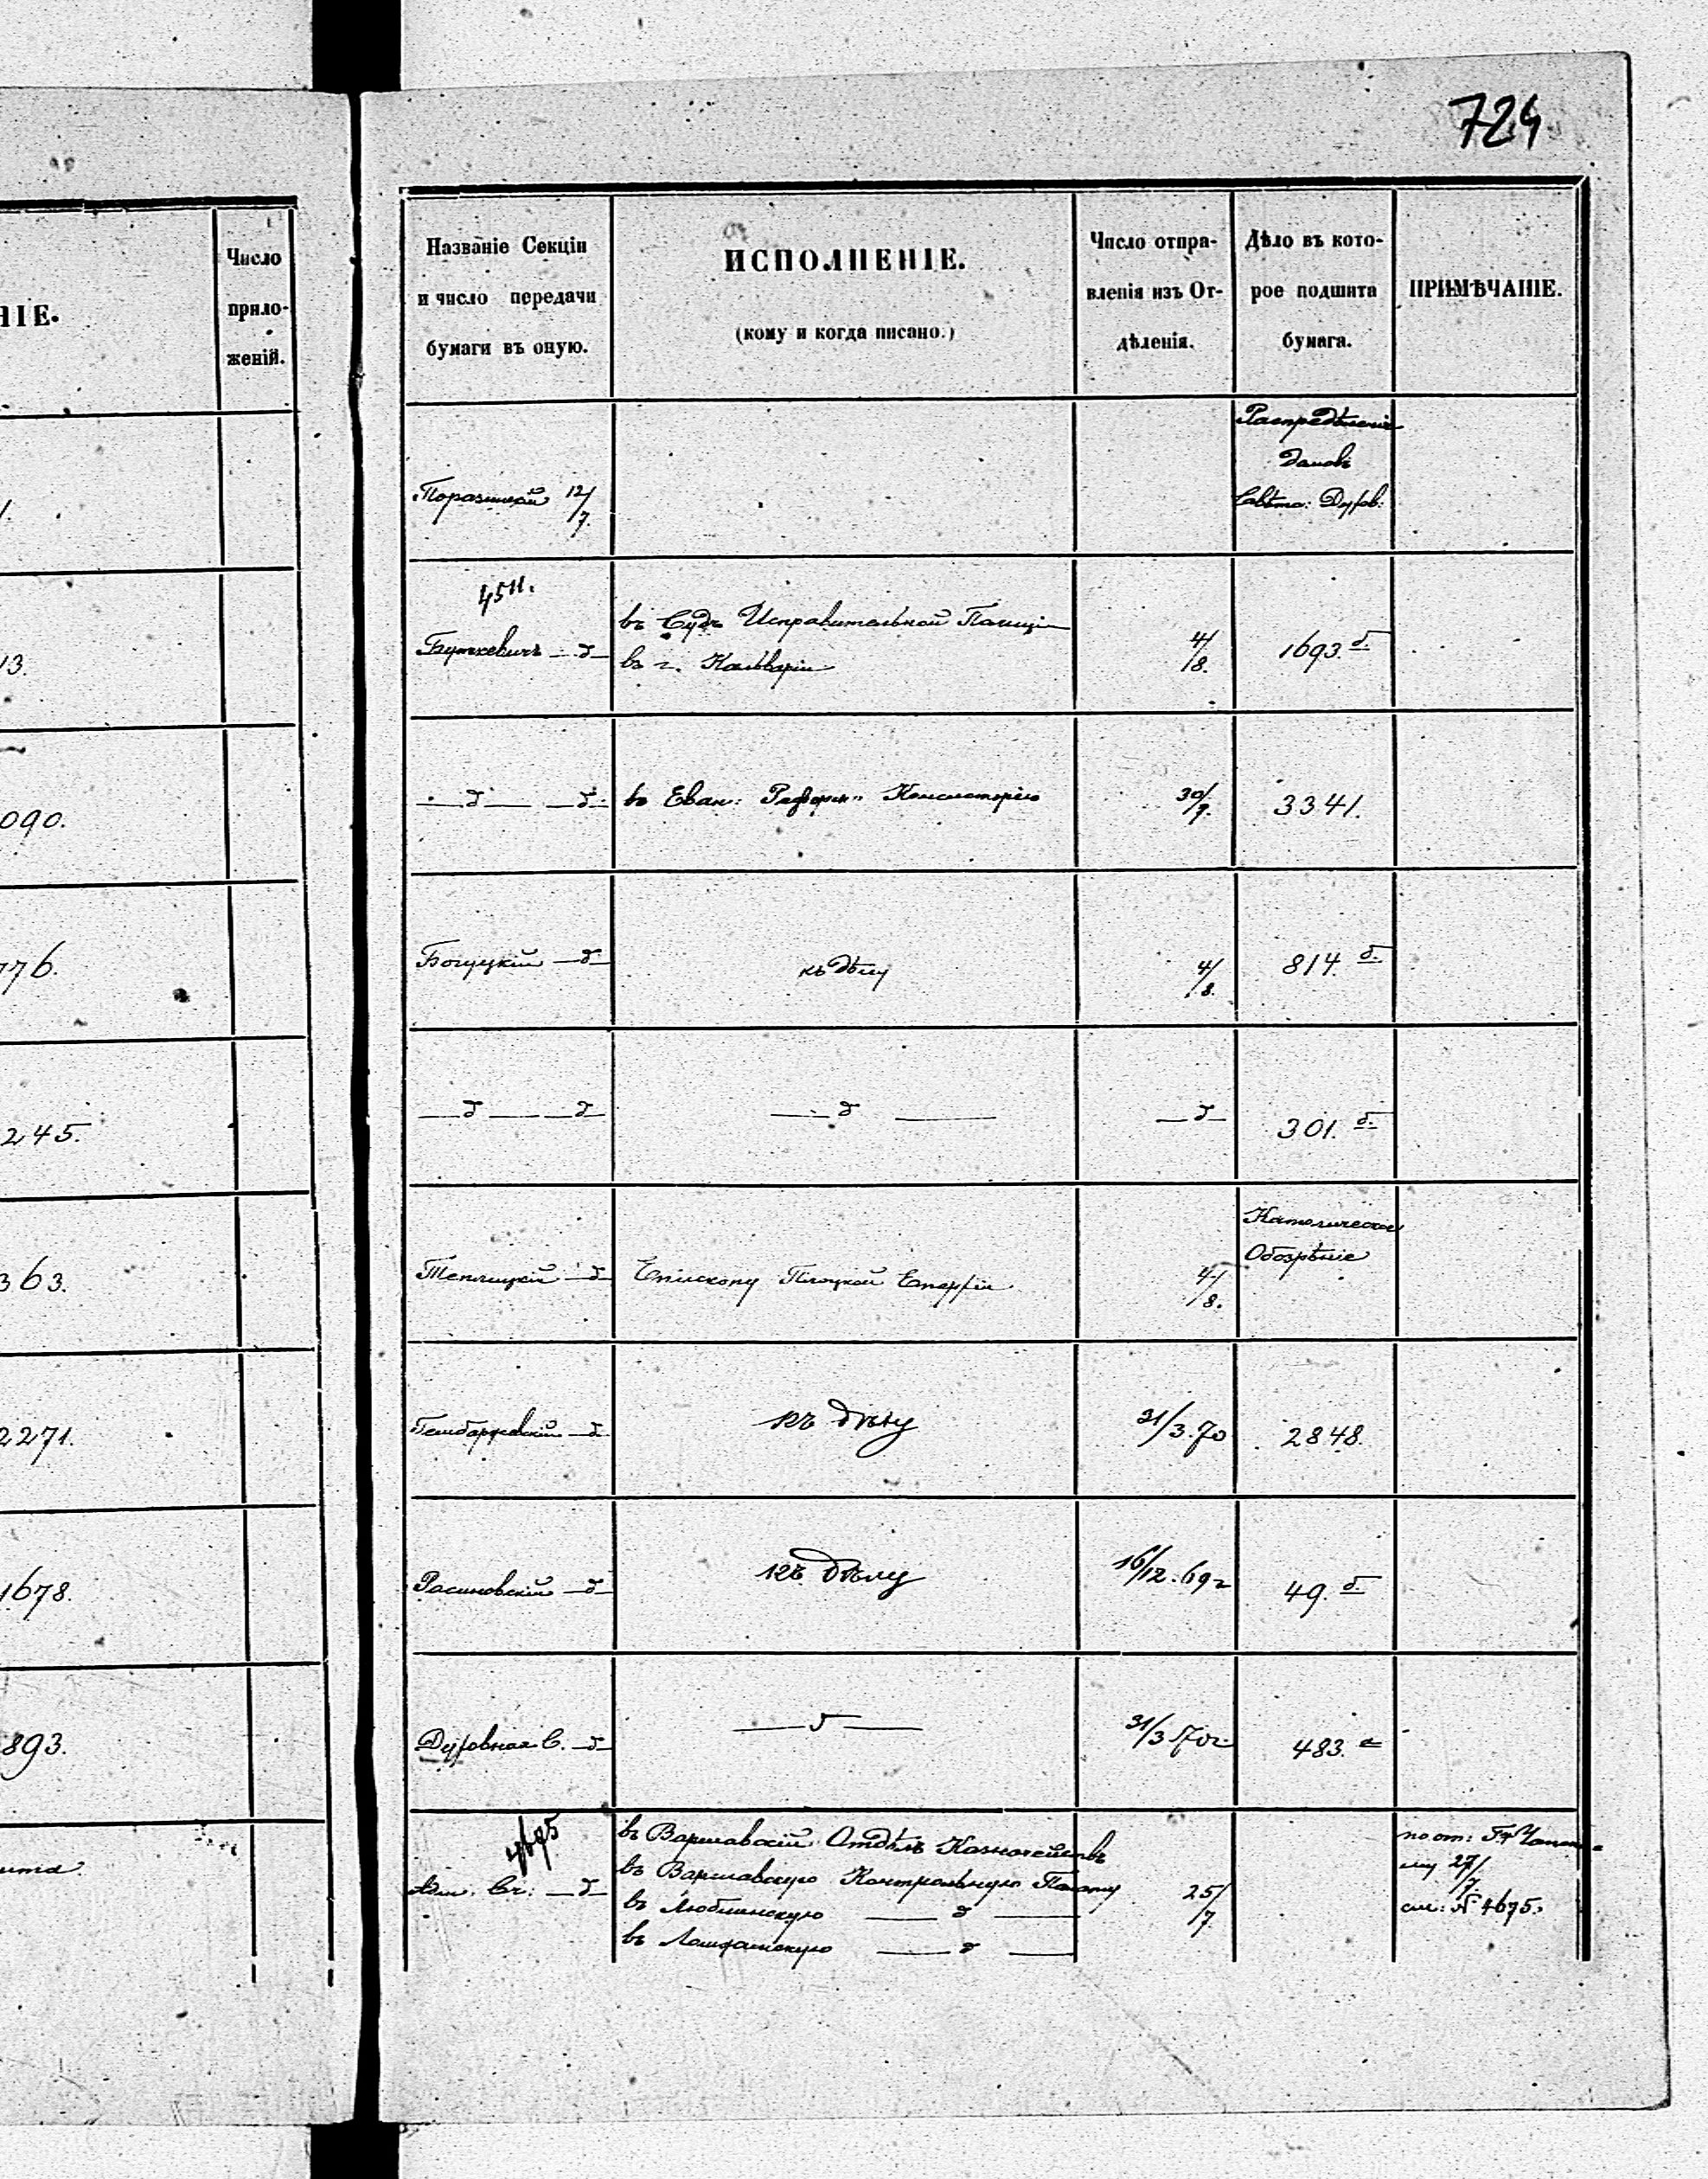 724
НІЕ.
Число
прило-
женій.
1.
13.
090.
776.
245.
363.
2271.
1678.
893.
Названіе Секціи
и число передачи
бумаги въ оную.
ИСПОЛНЕНІЕ.
(кому и когда писано.)
Число отпра-
вленія изъ От-
дѣленія.
Дѣло въ кото-
рое подшита
бумага.
ПРИМѢЧАНІЕ.
12/7.
Распредѣленіе
4511.
Буткевичъ —д—
въ Судъ Исправительной Полиціи
въ г. Кальваріи
4/8.
1693. б.
—д— —д—
въ Еван: Реформ: Консисторію
30/7.
3341.
Богуцкій —д—
къ дѣлу
4/8.
814. б.
—д— —д—
—д—
—д—
301. б.
Теплицкій —д—
Епископу Плоцкой Епархіи
4/8.
Католическое
Обозрѣніе
—д—
къ дѣлу
31/3.70
2848.
Расиновскій —д—
къ дѣлу
16/12.69 г
49. б.
Духовная С. —д—
—д—
31/3 70 г.
483. а
4695
Адм. Сч: —д—
въ Варшавскій Отдѣлъ Казначействъ
въ Варшавскую Контрольную Палату
въ Люблинскую —д—
въ Ломжинскую —д—
25/7
27/7
см: № 4695.